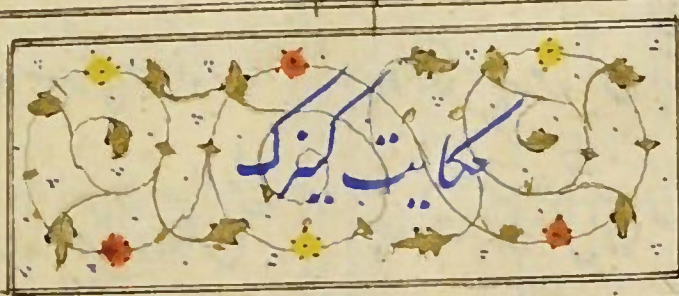 حکایت کنیزک